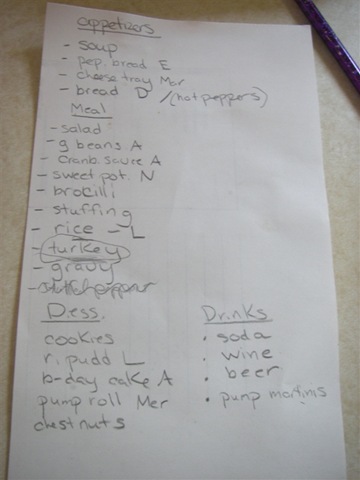 appetizers
- soup
- pep. bread E
- cheese tray Mar
- bread D /(hot peppers)
Meal
- salad
- g beans A
- cranb. sauce A
- sweet pot. N
- brocilli
- stuffing
- rice - L
- turkey
- gravy
Dess.
cookies
ri. pudd L
b-day cake A
pump roll Mer
chestnuts
Drinks
• soda
• wine
• beer
• pump martinis